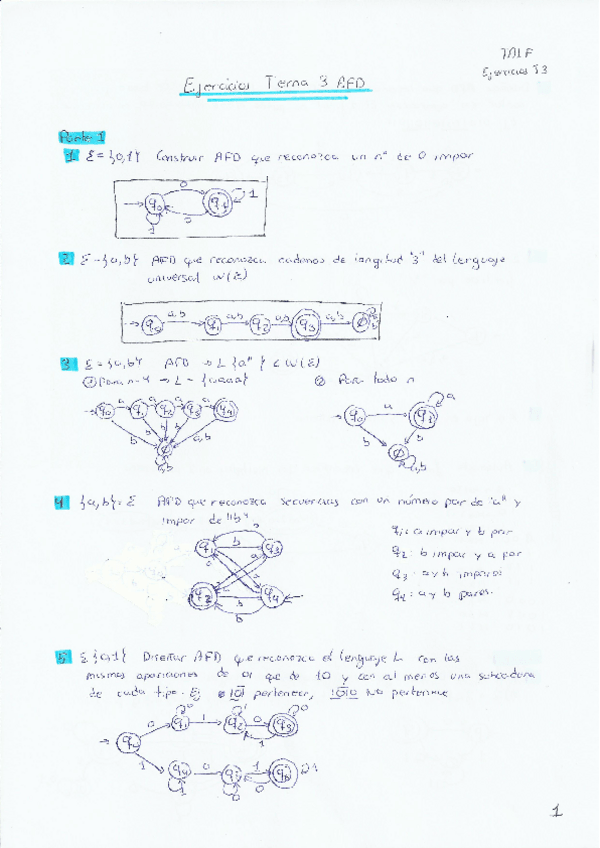 TALF
Ejercicios T3
Ejercicios Tema 3 AFD
Parte 1
1 Σ={0,1} Construir AFD que reconozca un nº de 0 impar
0
q0 q1 1
1 0
2 Σ={a,b} AFD que reconozca cadenas de longitud "3" del lenguaje
universal W(Σ)
a,b a,b a,b a,b
q0 q1 q2 q3 ∅
3 Σ={a,b} AFD → L {aⁿ} ⊂ W(Σ)
① Para n=4 → L = {aaaa} ② Para todo n
a a a a a a
q0 q1 q2 q3 q4 q0 q1
b b b b a,b b b
∅ ∅
a,b a,b
4 {a,b}=Σ AFD que reconozca secuencias con un número par de "a" y
impar de "b"
q1: a impar y b par
q1 b q3
q2: b impar y a par
q3: a y b impares
q2 b q4
q4: a y b pares.
b
5 Σ{0,1} Diseñar AFD que reconozca el lenguaje L con las
mismas apariciones de 01 que de 10 y con al menos una subcadena
de cada tipo. Ej 101 pertenece, 1010 No pertenece
0 q1 0 1 q2 1 0 q3 0
1
q0
1 q4 0 1 q6 1
1 0 0
1